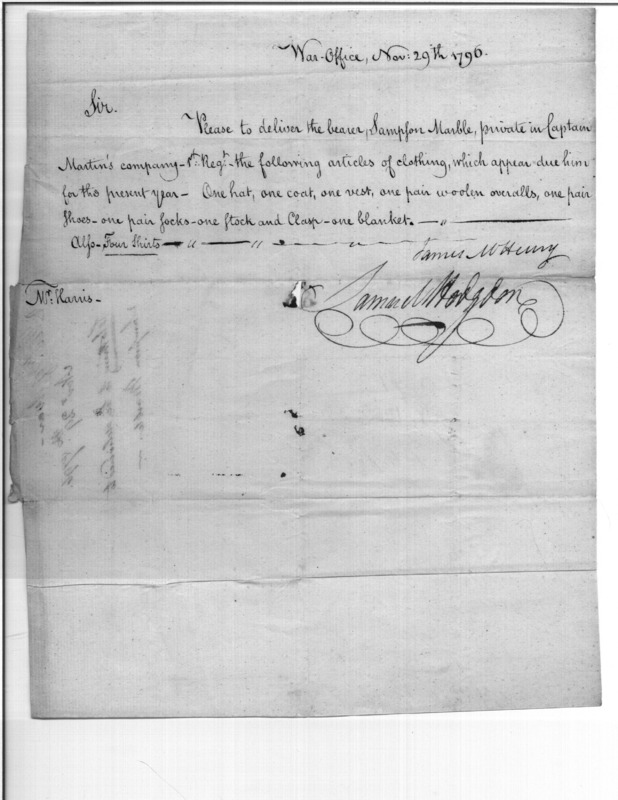 War-Office, Nov: 29th 1796.
Sir.
Please to deliver the bearer, Sampſon Marble, private in Captain
Martin's company - 1st. Regt. - the following articles of clothing, which appear due him
for the present year - One hat, one coat, one vest, one pair woolen overalls, one pair
Shoes - one pair ſocks - one Stock and Clasp - one blanket. - "
Alſo - Four Shirts - " - " - " - " -
James McHenry
Mr. Harris -
Samuel Hodgdon